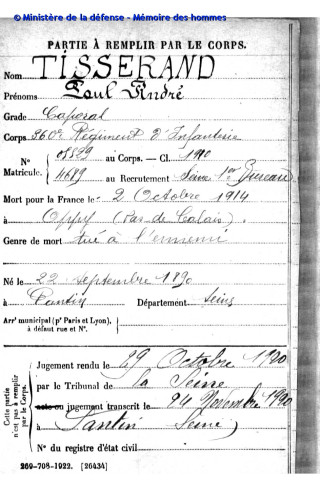 © Ministère de la défense - Mémoire des hommes
PARTIE À REMPLIR PAR LE CORPS.
Nom TISSERAND
Prénoms Paul André
Grade Caporal
Corps 360e Régiment d'Infanterie
N° 05889 au Corps. — Cl. 1910
Matricule. 4689 au Recrutement Seine 1er Bureau
Mort pour la France le 2 Octobre 1914
à Oppy (Pas de Calais)
Genre de mort tué à l'ennemi
Né le 22 septembre 1890
à Pantin Département Seine
Arr' municipal (p' Paris et Lyon),
à défaut rue et N°.
Cette partie
n'est pas à remplir
par le Corps.
Jugement rendu le 29 Octobre 1920
par le Tribunal de la Seine
acte ou jugement transcrit le 24 Novembre 1920
à Pantin Seine
N° du registre d'état civil
269-708-1922. [26434]